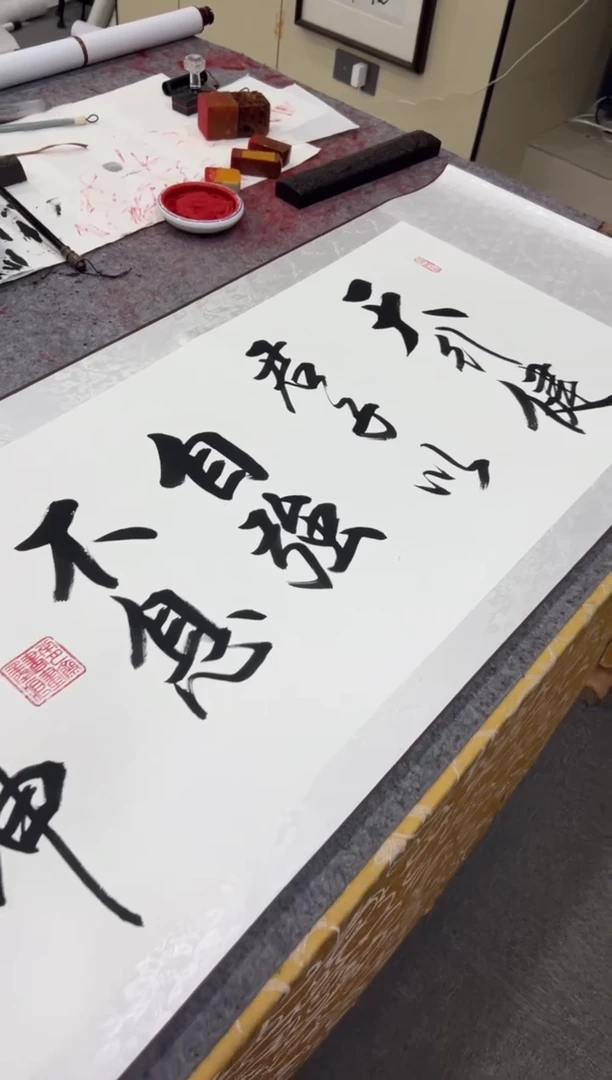 天行健
君子以
自強
不息